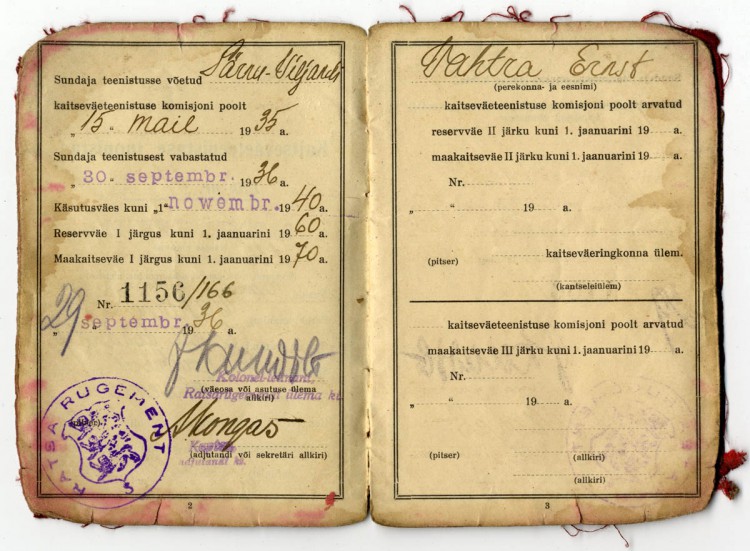 Sundaja teenistusse võetud Pärnu-Viljandi
kaitseväeteenistuse komisjoni poolt
„ 15. " mail 1935 a.
Sundaja teenistusest vabastatud
„ 30. septembr. 1936 a.
Käsutusväes kuni „1" nowembr. 1940 a.
Reservväe I järgus kuni 1. jaanuarini 1960 a.
Maakaitseväe I järgus kuni 1. jaanuarini 1970 a.
Nr. 1156/166
„ 29 " septembr 1936 a.
Kolonel-leitnant,
Ratsarügemendi ülema kt.
(väeosa või asutuse ülema
allkiri)
(pitser).
RATSA RÜGEMENT
(adjutandi või sekretäri allkiri)
adjutandi kt.
2
Vahtra Ernst
(perekonna- ja eesnimi)
kaitseväeteenistuse komisjoni poolt arvatud
reservväe II järku kuni 1. jaanuarini 19 a.
maakaitseväe II järku kuni 1. jaanuarini 19 a.
Nr.
„ " 19 a.
kaitseväeringkonna ülem.
(pitser)
(kantseleiülem)
kaitseväeteenistuse komisjoni poolt arvatud
maakaitseväe III järku kuni 1. jaanuarini 19 a.
Nr.
„ " 19 a.
(pitser) (allkiri)
(allkiri)
3